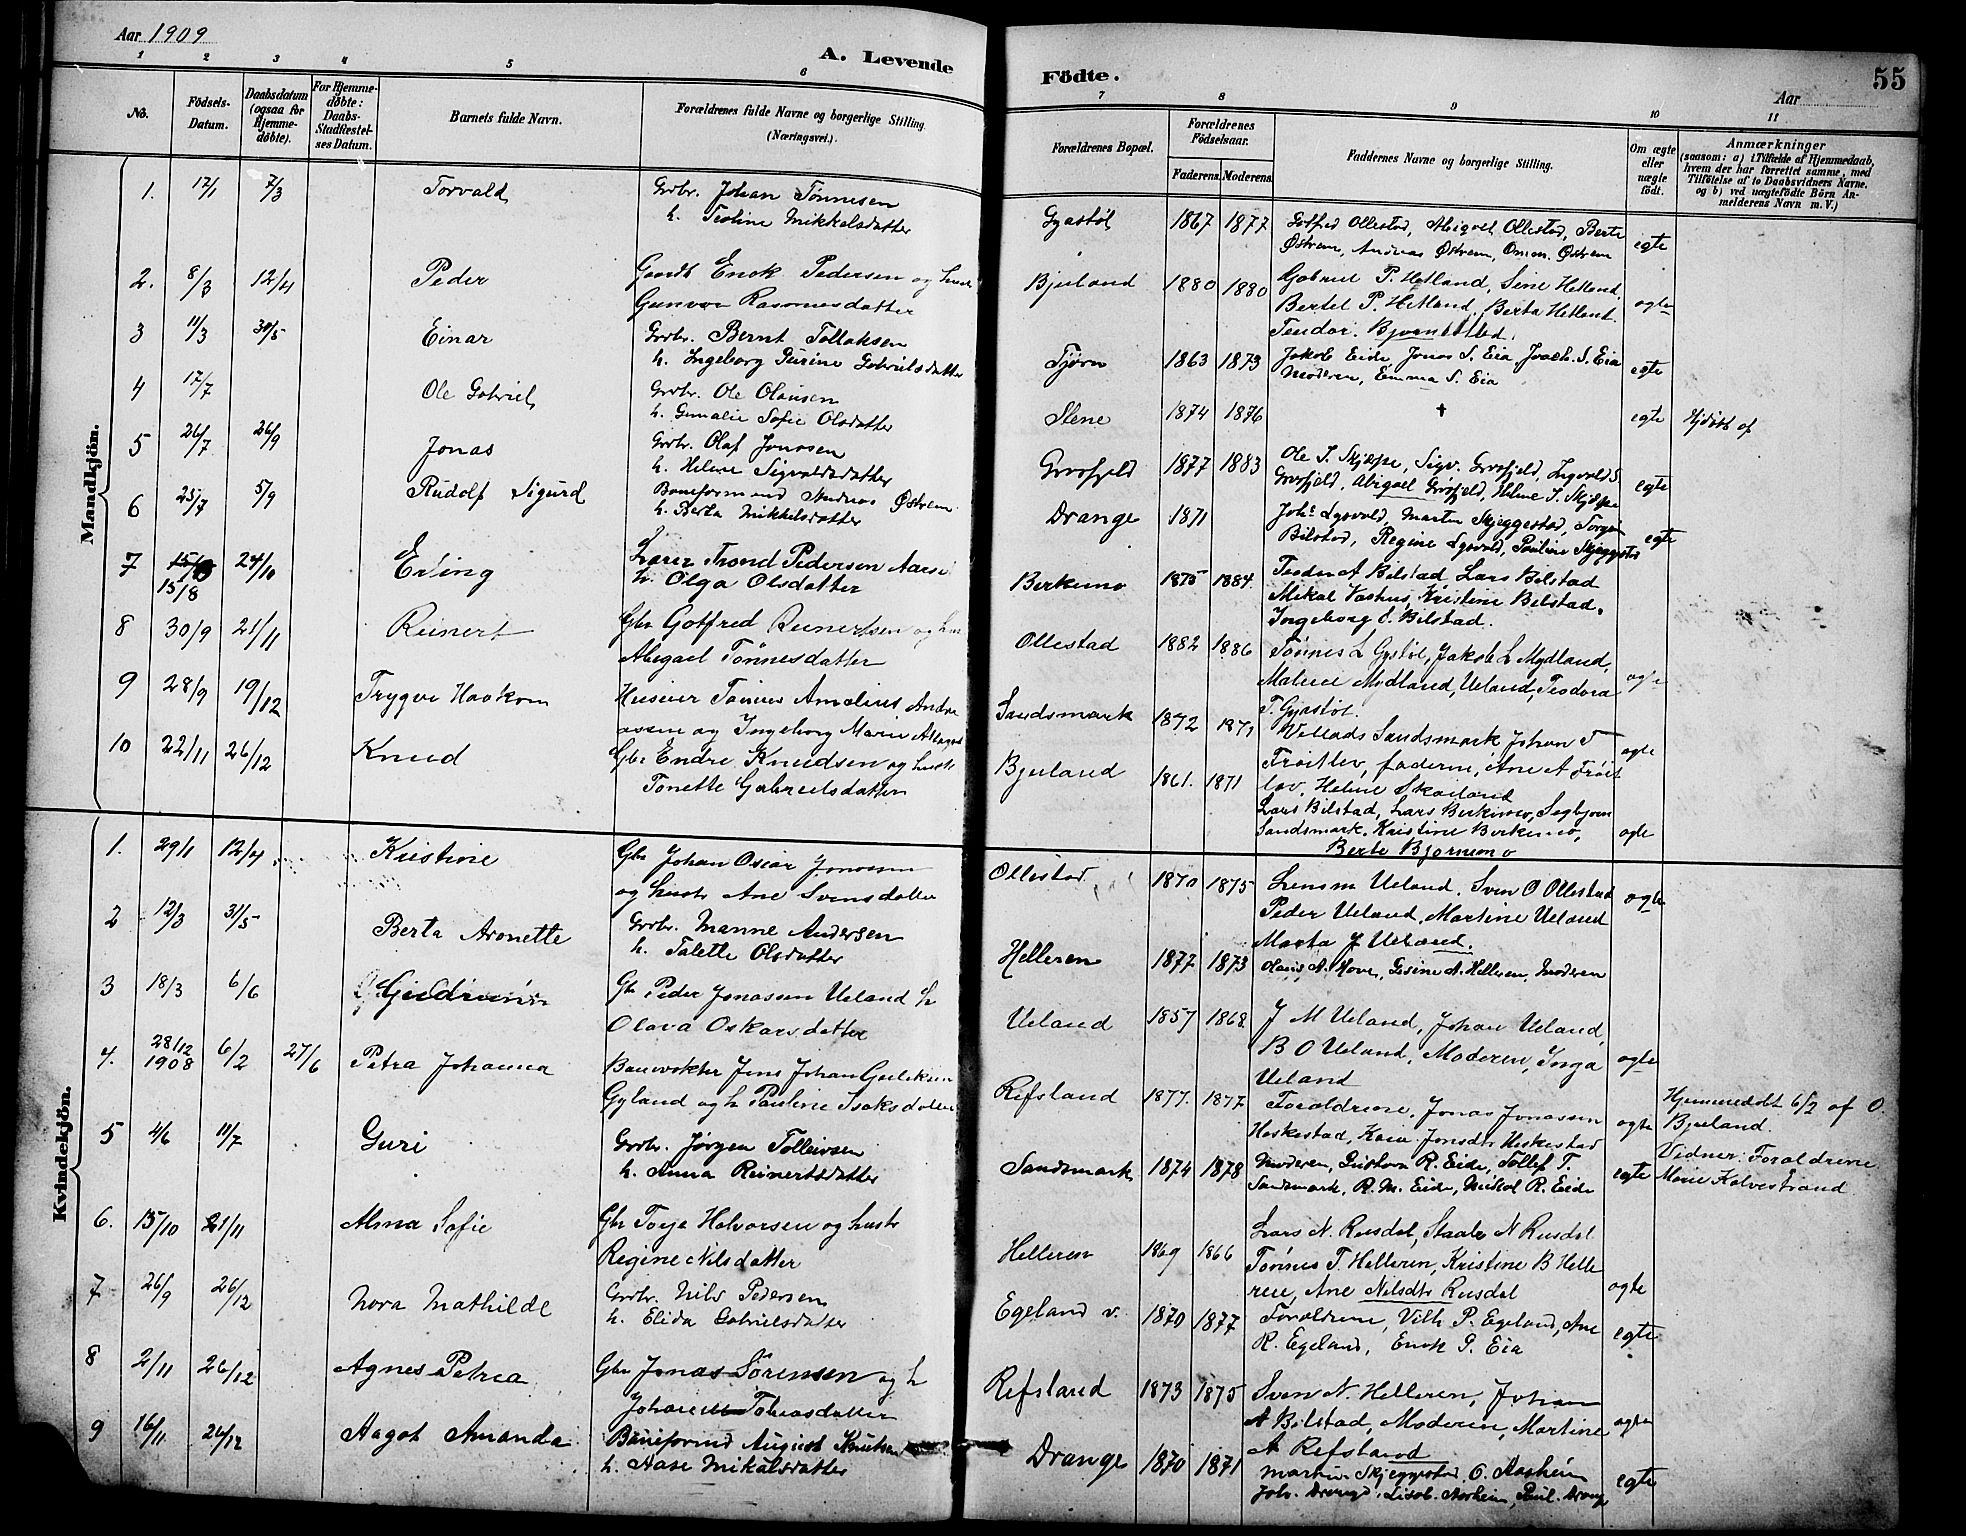 Aar 1909
A. Levende
1 2 3 4 5 6
No.
Födsels-Datum.
Daabsdatum (ogsaa for Hjemmedøbte).
For Hjemmedøbte: Daabs-Stadfæstelses Datum.
Barnets fulde Navn.
Forældrenes fulde Navne og borgerlige Stilling.
(Næringsvei.)
Mandkjön.
1. 17/1 7/3 Torvald Grbr. Johan Tönnesen
h. Teoline Mikkelsdatter
2. 8/3 12/4 Peder Gaardbr Enok Pedersen og hustr
Gunvor Rasmusdatter
3 11/3 30/5 Einar Grbr. Bernt Tollaksen
h. Ingeborg Gurine Gabrielsdatter
4 17/7 Ole Gabriel Grbr. Ole Olausen
h. Gunalie Sofie Olsdatter
5 26/7 26/9 Jonas Grbr. Olaf Jonasen
h. Helene Sigvaldsdatter
6 25/7 5/9 Rudolf Sigurd Baneformand Andreas Østrem
h. Berta Mikkelsdatter
7 15/8 24/10 Erling Lærer Trond Pedersen Aarsi
h. Olga Olsdatter
8 30/9 21/11 Reinert Gbr Gotfred Reinertsen og hu
Abigael Tönnesdatter
9 28/9 19/12 Trygve Haakon Huseier Tønnes Amelius Andre
assen og Ingeborg Marie
10 22/11 26/12 Knud Gbr Endre Knudsen og hustr
Tonette Gabrielsdatter
Kvindekjön.
1. 29/1 12/4 Kristine Gbr Johan Oscar Jonassen
og hustr Ane Svensdatter
2 12/3 31/5 Berta Aronette Grbr. Manne Andersen
h. Talette Olsdatter
3 18/3 6/6 Gudrun Gbr Peder Jonassen Ueland h
Olava Oskarsdatter
4. 28/12 1908 6/2 27/6 Petra Johanna Banevokter Jens Johan
Gyland og h Pauline Isaksdatter
5 4/6 11/7 Guri Grbr. Jørgen Tolleivsen
h. Anna Reinertsdatter
6. 15/10 21/11 Alma Sofie Gbr Torje Halvorsen og hustr
Regine Nilsdatter
7 26/9 26/12 Nora Mathilde Grbr. Nils Pedersen
h. Elida Gabrielsdatter
8 2/11 26/12 Agnes Petrea Gbr Jonas Sörensen og h
Johanne Tobiasdatter
9 16/11 26/12 Aagot Amanda Baneformd August Knutsen
h. Aase Mikalsdatter
Födte.
55
Aar
7 8 9 10 11
Forældrenes Bopæl.
Forældrenes Födselsaar.
Faderens. Moderens.
Faddernes Navne og borgerlige Stilling.
Om ægte eller uægte født.
Anmærkninger
(saasom: a) i Tilfælde af Hjemmedaab,
hvem der har forrettet samme, med
Tilföielse af to Daabsvidners Navne.
og b) ved uægtefödte Börn An-
melderens Navn m. V.)
Gyastøl 1867 1877 Gotfred Ollestad, Abigael Ollestad, Berte
Østrem, Andreas Østrem, Østrem egte
Bjuland 1880 1880 Gabriel P. Hetland, Sine Hetland,
Bertel P. Hetland, Berta Hetland. ægte
Teodor Bjørnestad.
Tjørn 1863 1873 Jakob Eide, Jonas S. Eia, Joach. S. Eia
Moderen, Emma S. Eia egte
Slene 1874 1876 † egte Hjdøbt af
Grøsfjeld 1877 1883 Ole I. Skjæpe, Sigv. Grøsfjeld, Ingvald S.
Grøsfjeld, Abigael Grøsfjeld, Helene I. Skjæpe egte
Drange 1871 Johs Lyvold, Martin Skjeggestad, Torgrim
Bilstad, Regine Lyvold, Pauline Skjeggestad egte
Berkemo 1875 1884. Teodor A Bilstad Lars Bilstad
Mikal Vashus, Kristine Bilstad,
Ingeborg O. Bilstad.
Ollestad 1882 1886 Tønnes L Gystøl, Jakob L Mydland,
Malene Mydland, Ueland, Teodora ægte
T. Gyastøl.
Sandsmark 1872 1871 Villads Sandsmark Johan T
Frøitlov, faderne, Ane A Frøit ægte
lov, Helene Skailand
Bjuland 1861. 1871 Lars Bilstad, Lars Berkemo, Segbjørn
Sandsmark, Kristine Berkemo, ægte
Berte Bjørnemo
Ollestad 1870 1875 Lensm Ueland, Sven O Ollestad
Peder Ueland, Martine Ueland ægte
Marta J Ueland.
Helleren 1877 1873 Olaus A. Hove, Gesine A. Helleren, Moderen
Ueland 1857 1868 J M Ueland, Johan Ueland,
B O Ueland, Moderen, Inga ægte
Ueland
Refsland 1877. 1877 Forældrene, Jonas Jonassen
Heskestad, Kaia Jonsdtr Heskestad ægte
Hjemmedøbt 6/2 af O.
Bjuland.
Vidner: Forældrene
Marie Kalvestrand
Sandsmark 1874 1878 Moderen, Gustava R. Eide, Tollef T.
Sandsmark, R. M. Eide, Mikal R. Eide egte
Helleren 1869 1866 Lars N. Rusdal, Staale N Rusdal
Tønnes T. Helleren, Kristine B Helle
ren, Ane Nilsdtr Rusdal ægte
Egeland v. 1870 1877 Forældrene, Vilh P. Egeland, Ane
R. Egeland, Enok P. Eia egte
Refsland 1873 1875 Sven N. Helleren, Johan
A Bilstad, Moderen, Martine ægte
A Refsland
Drange 1870 1871 Martin Skjeggestad O. Aasheim
Johs. Drange, Lisab. Aasheim, Paul. Drange egte